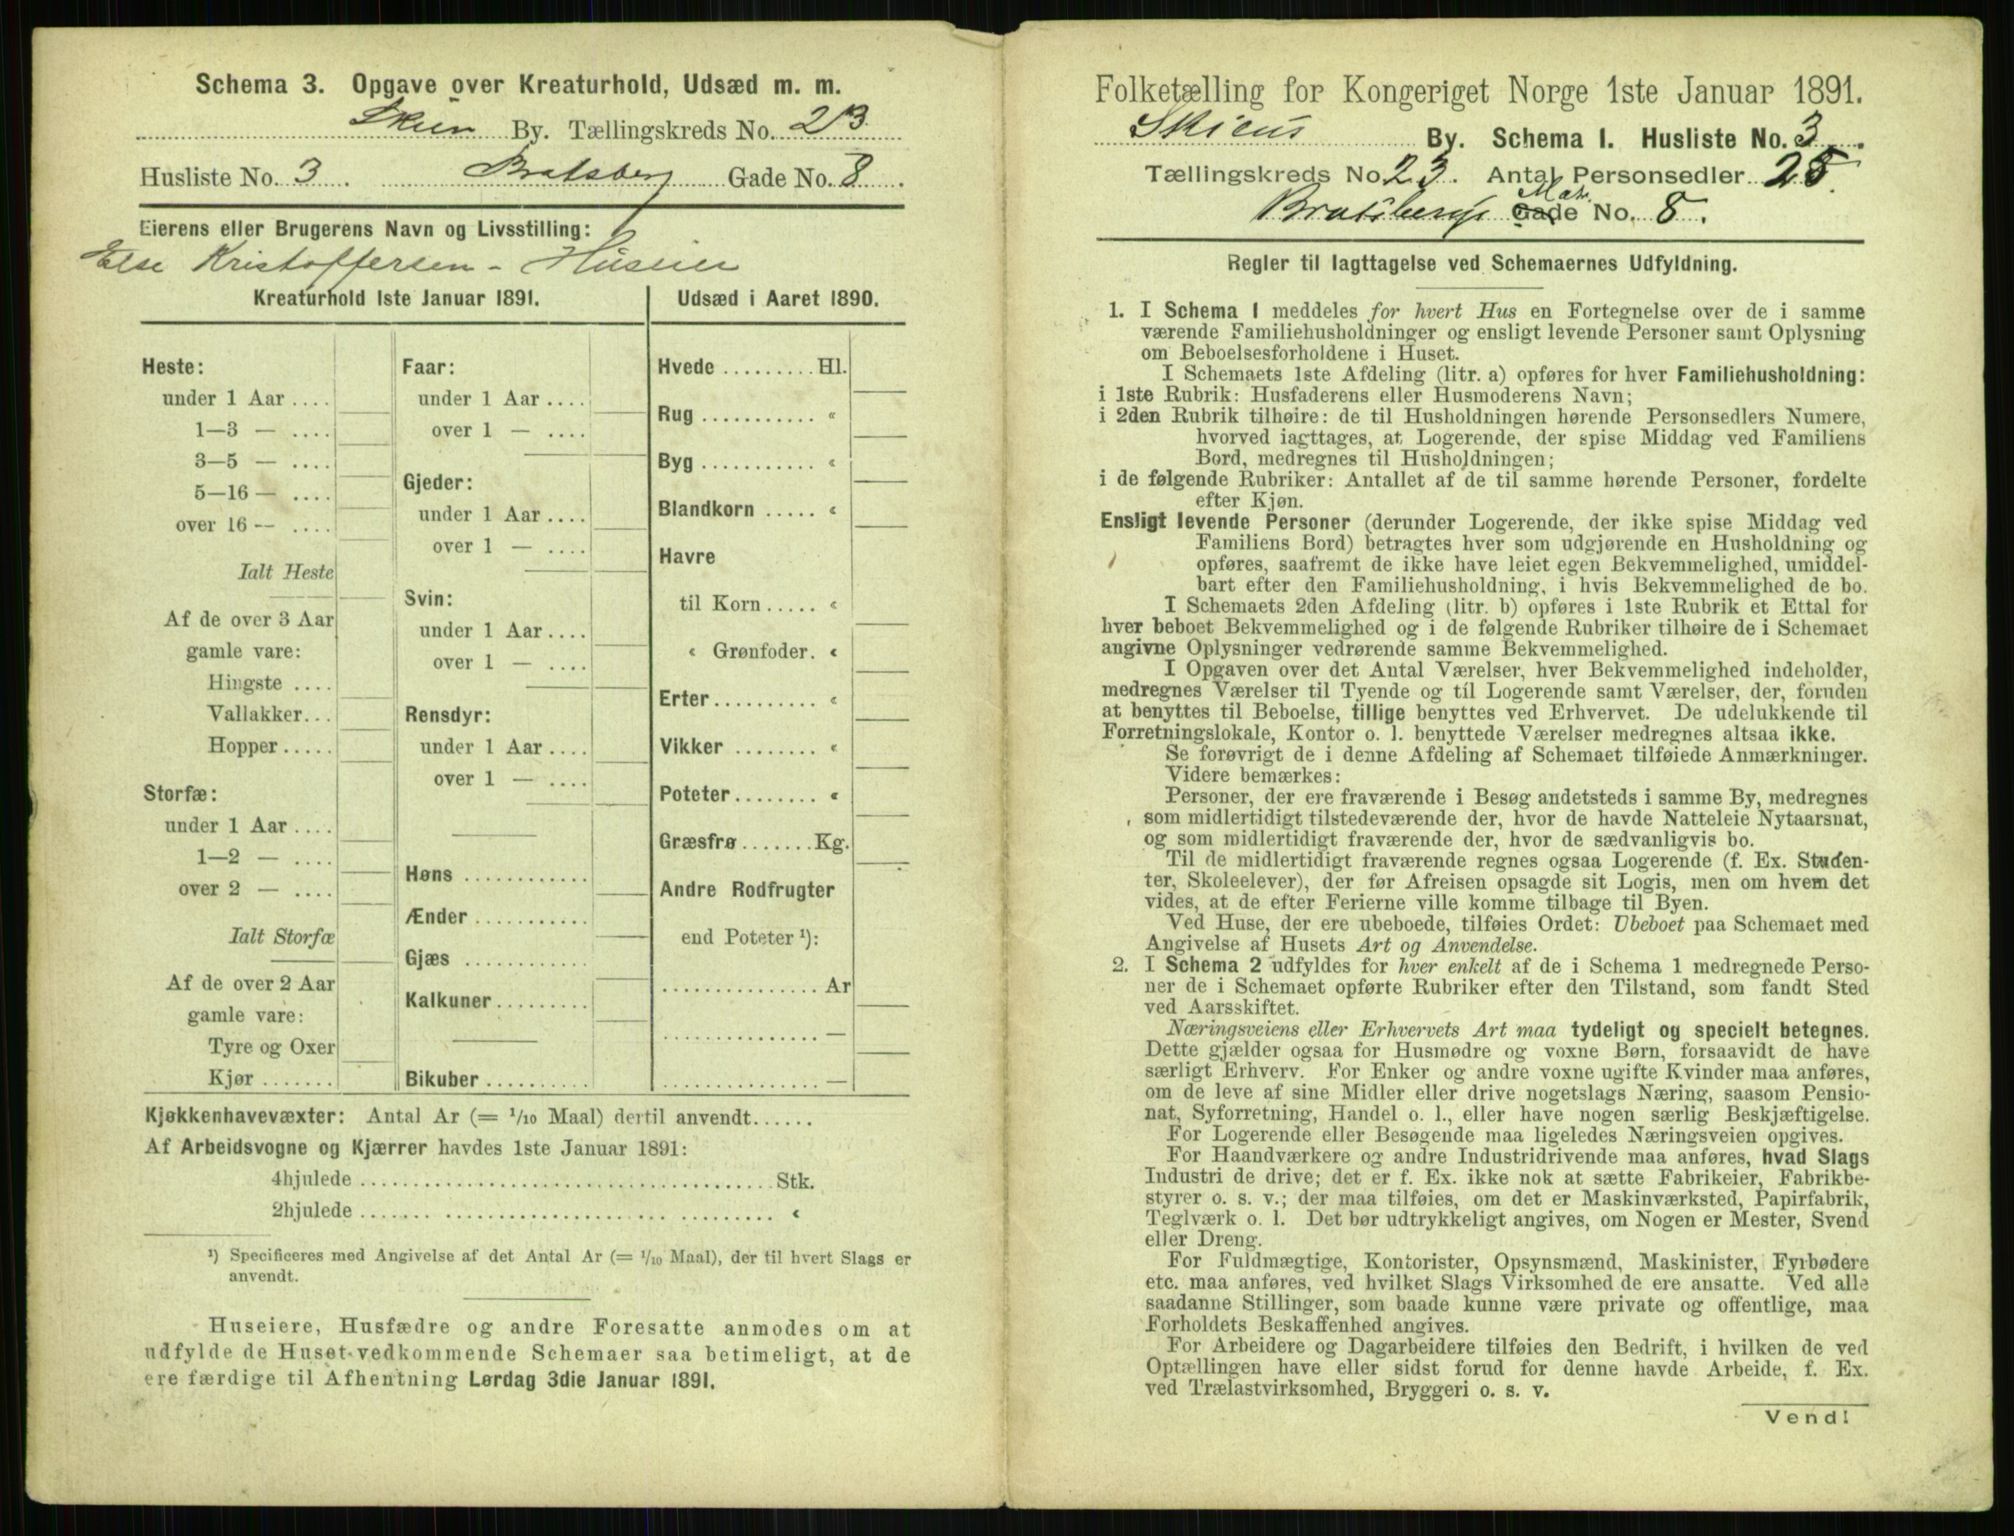 Schema 3. Opgave over Kreaturhold, Udsæd m. m.
Skien By. Tællingskreds No. 23
Husliste No. 3. Bratsberg Gade No. 8.
Eierens eller Brugerens Navn og Livsstilling:
Else Kristoffersen - Huseier
Kreaturhold 1ste Januar 1891.
Heste:
under 1 Aar ....
1—3 — ....
3—5 — ....
5—16 — ....
over 16 — ....
Ialt Heste
Af de over 3 Aar
gamle vare:
Hingste ....
Vallakker...
Hopper.....
Storfæ:
under 1 Aar ....
1—2 — ....
over 2 — ....
Ialt Storfæ
Af de over 2 Aar
gamle vare:
Tyre og Oxer
Kjør .......
Faar:
under 1 Aar ....
over 1 — ....
Gjeder:
under 1 Aar ....
over 1 — ....
Svin:
under 1 Aar ....
over 1 — ....
Rensdyr:
under 1 Aar ....
over 1 — ....
Høns ............
Ænder ...........
Gjæs ............
Kalkuner.........
Bikuber ..........
Udsæd i Aaret 1890.
Hvede ......... Hl.
Rug ........... «
Byg ........... «
Blandkorn ..... «
Havre
til Korn ..... «
« Grønfoder. «
Erter.......... «
Vikker ........ «
Poteter........ «
Græsfrø ....... Kg.
Andre Rodfrugter
end Poteter ¹):
............... Ar
............... —
............... —
Kjøkkenhavevæxter: Antal Ar (= 1/10 Maal) dertil anvendt......
Af Arbeidsvogne og Kjærrer havdes 1ste Januar 1891:
4hjulede ...................................... Stk.
2hjulede ...................................... «
¹) Specificeres med Angivelse af det Antal Ar (= 1/10 Maal), der til hvert Slags er
anvendt.
Huseiere, Husfædre og andre Foresatte anmodes om at
udfylde de Huset vedkommende Schemaer saa betimeligt, at de
ere færdige til Afhentning Lørdag 3die Januar 1891.
Folketælling for Kongeriget Norge 1ste Januar 1891.
Skiens By. Schema I. Husliste No. 3.
Tællingskreds No 23. Antal Personsedler 25.
Mat.
Gade No. 8.
Regler til Iagttagelse ved Schemaernes Udfyldning.
1. I Schema 1 meddeles for hvert Hus en Fortegnelse over de i samme
værende Familiehusholdninger og ensligt levende Personer samt Oplysning
om Beboelsesforholdene i Huset.
I Schemaets 1ste Afdeling (litr. a) opføres for hver Familiehusholdning:
i 1ste Rubrik: Husfaderens eller Husmoderens Navn;
i 2den Rubrik tilhøire: de til Husholdningen hørende Personsedlers Numere,
hvorved iagttages, at Logerende, der spise Middag ved Familiens
Bord, medregnes til Husholdningen;
i de følgende Rubriker: Antallet af de til samme hørende Personer, fordelte
efter Kjøn.
Ensligt levende Personer (derunder Logerende, der ikke spise Middag ved
Familiens Bord) betragtes hver som udgjørende en Husholdning og
opføres, saafremt de ikke have leiet egen Bekvemmelighed, umiddel-
bart efter den Familiehusholdning, i hvis Bekvemmelighed de bo.
I Schemaets 2den Afdeling (litr. b) opføres i 1ste Rubrik et Ettal for
hver beboet Bekvemmelighed og i de følgende Rubriker tilhøire de i Schemaet
angivne Oplysninger vedrørende samme Bekvemmelighed.
I Opgaven over det Antal Værelser, hver Bekvemmelighed indeholder,
medregnes Værelser til Tyende og til Logerende samt Værelser, der, foruden
at benyttes til Beboelse, tillige benyttes ved Erhvervet. De udelukkende til
Forretningslokale, Kontor o. l. benyttede Værelser medregnes altsaa ikke.
Se forøvrigt de i denne Afdeling af Schemaet tilføiede Anmærkninger.
Videre bemærkes:
Personer, der ere fraværende i Besøg andetsteds i samme By, medregnes
som midlertidigt tilstedeværende der, hvor de havde Natteleie Nytaarsnat,
og som midlertidigt fraværende der, hvor de sædvanligvis bo.
Til de midlertidigt fraværende regnes ogsaa Logerende (f. Ex. Studen-
ter, Skoleelever), der før Afreisen opsagde sit Logis, men om hvem det
vides, at de efter Ferierne ville komme tilbage til Byen.
Ved Huse, der ere ubeboede, tilføies Ordet: Ubeboet paa Schemaet med
Angivelse af Husets Art og Anvendelse.
2. I Schema 2 udfyldes for hver enkelt af de i Schema 1 medregnede Perso-
ner de i Schemaet opførte Rubriker efter den Tilstand, som fandt Sted
ved Aarsskiftet.
Næringsveiens eller Erhvervets Art maa tydeligt og specielt betegnes.
Dette gjælder ogsaa for Husmødre og voxne Børn, forsaavidt de have
særligt Erhverv. For Enker og andre voxne ugifte Kvinder maa anføres,
om de leve af sine Midler eller drive nogetslags Næring, saasom Pensio-
nat, Syforretning, Handel o. l., eller have nogen særlig Beskjæftigelse.
For Logerende eller Besøgende maa ligeledes Næringsveien opgives.
For Haandværkere og andre Industridrivende maa anføres, hvad Slags
Industri de drive; det er f. Ex. ikke nok at sætte Fabrikeier, Fabrikbe-
styrer o. s. v.; der maa tilføies, om det er Maskinværksted, Papirfabrik,
Teglværk o. l. Det bør udtrykkeligt angives, om Nogen er Mester, Svend
eller Dreng.
For Fuldmægtige, Kontorister, Opsynsmænd, Maskinister, Fyrbødere
etc. maa anføres, ved hvilket Slags Virksomhed de ere ansatte. Ved alle
saadanne Stillinger, som baade kunne være private og offentlige, maa
Forholdets Beskaffenhed angives.
For Arbeidere og Dagarbeidere tilføies den Bedrift, i hvilken de ved
Optællingen have eller sidst forud for denne havde Arbeide, f. Ex.
ved Trælastvirksomhed, Bryggeri o. s. v.
Vend!